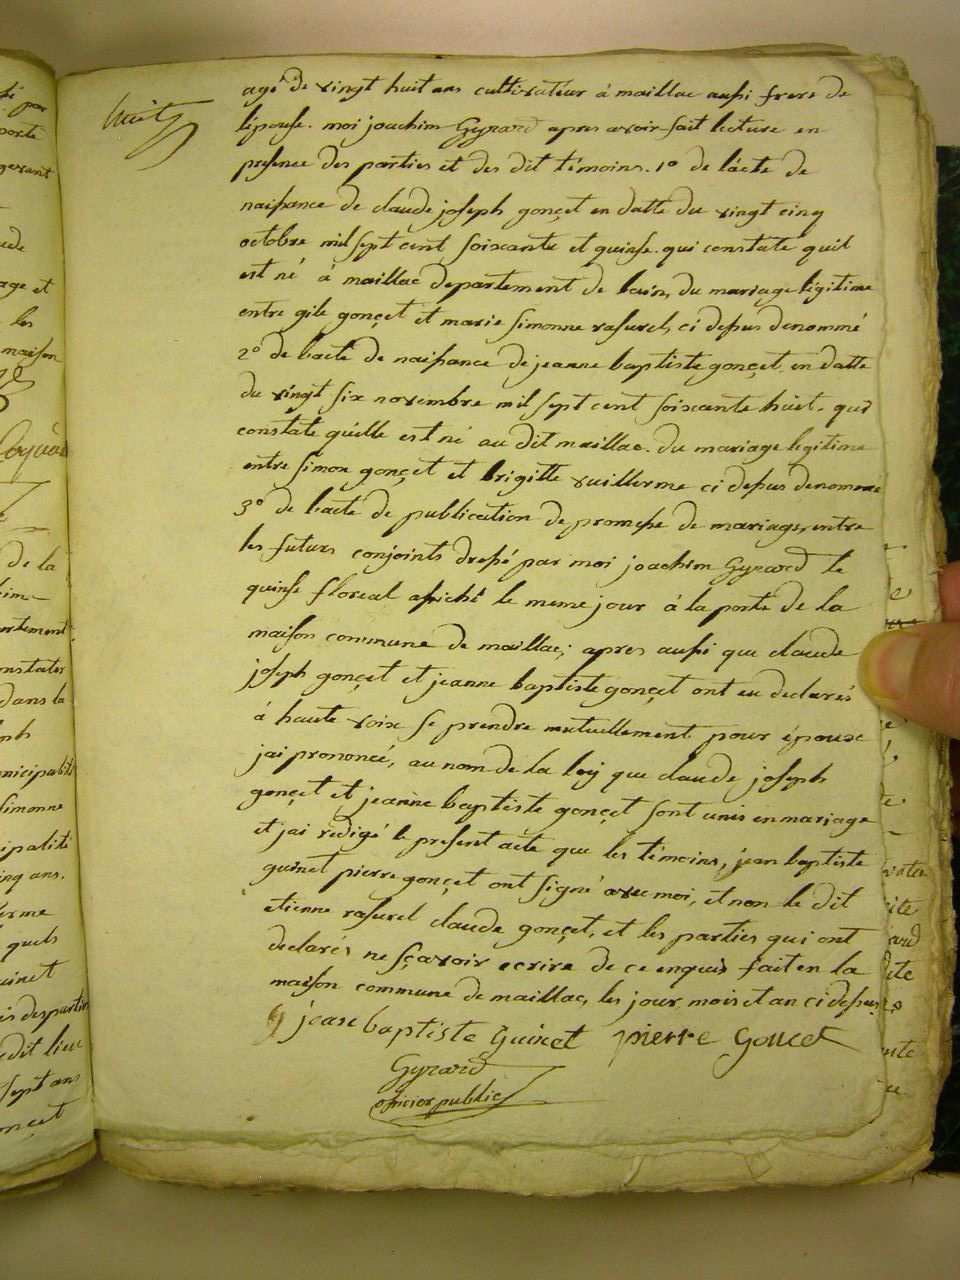 si par
porte
gerant
ude
age et
les
maison
Coquà
de la
artement
onstater
dans la
ph
nicipalité
simonne
ipalité
inq ans.
erme
quels
uinet
is despartir
edit lieu
sept ans
onçet
huit
agé de vingt huit ans cultivateur à maillac aussi frere de
l'épouse. moi joachim Gyrard apres avoir fait lecture en
presence des parties et des dit témoins. 1º de l'acte de
naissance de claude joseph gonçet en datte du vingt cinq
octobre mil sept cent soixante et quinse. qui constate quil
est né à maillac departement de lain, du mariage légitime
entre gile gonçet et marie simonne rasurel, ci depus denommé
2º de l'acte de naissance de jeanne baptiste gonçet, en datte
du vingt six novembre mil sept cent soixante huit. qui
constate quélle est né au dit maillac. du mariage legitime
entre simon gonçet et brigitte vuillerme ci depus denomme
3º de l'acte de publication de promesse de mariage, entre
les futurs conjoints dressé par moi joachim Gyrard le
quinse floreal afiché le meme jour à la porte de la
maison commune de maillac; apres aussi que claude
joseph gonçet et jeanne baptiste gonçet ont eu declarés
à haute voix se prendre mutuellement pour épouse
jai prononcé, au nom de la loy que claude joseph
gonçet et jeanne baptiste gonçet sont unis en mariage
et jai redigé le present acte que les témoins, jean baptiste
guinet pierre gonçet ont signé avec moi, et non le dit
etienne rasurel claude gonçet, et les parties qui ont
declarés ne sçavoir ecrire de ce enquis fait en la
maison commune de maillac, les jour mois et an ci depus
jean baptiste Guinet pierre Goncet
Gyrard
officier public